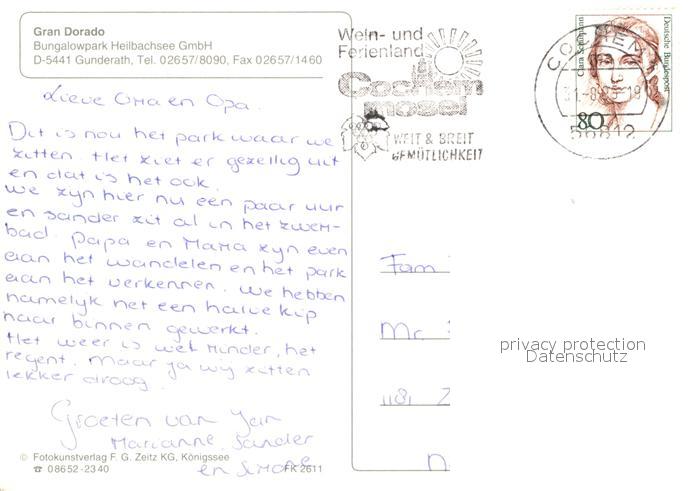 Gran Dorado
Bungalowpark Heilbachsee GmbH
D-5441 Gunderath, Tel. 02657/8090, Fax 02657/1460
Lieve Oma en Opa.
Dit is nou het park waar we
zitten. Het ziet er gezellig uit
en dat is het ook.
We zyn hier nu een paar uur
en sander zit al in het zwem-
bad. Papa en Mama zyn even
aan het wandelen en het park
aan het verkennen. We hebben
namelyk net een halve kip
naar binnen gewerkt.
Het weer is wat minder, het
regent. Maar ja wy zitten
lekker droog.
Groeten van Jan
Marianne, Sander
en Simone
© Fotokunstverlag F. G. Zeitz KG, Königssee
☎ 08652-2340
FK 2611
Wein- und
Ferienland
Cochem
mosel
WEIT & BREIT
GEMÜTLICHKEIT
COCHEM
56812
Clara Schumann
Deutsche Bundespost
80
Fam
Mr.
1181 Z
N
privacy protection
Datenschutz